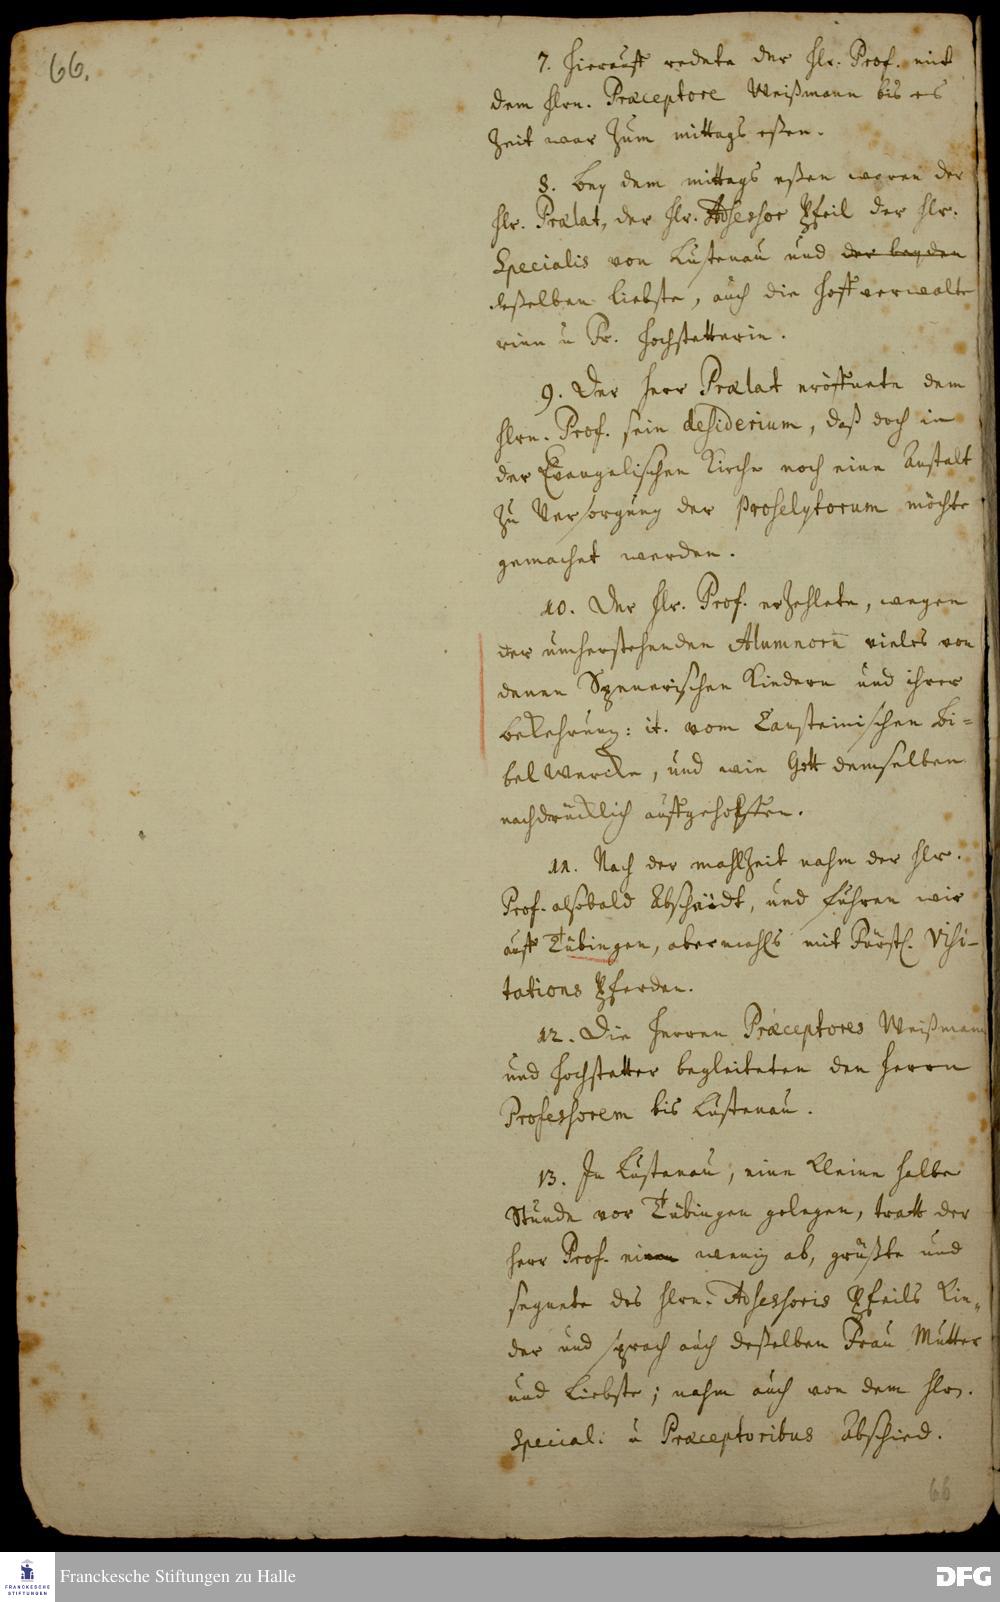 66.
7. Hierauff redete der Hr. Prof. mit
dem Hrn. Præceptore Weißmann bis es
Zeit war zum mittags eßen.
8. Bey dem mittags eßen waren der
Hr. Prælat, der Hr. Assessor Pfeil der Hr.
Specialis von Lustenau und der beyden
deßelben Liebste, auch die Hoffverwalte
rinn u Fr. Hochstetterin.
9. Der Herr Prælat eröffnete dem
Hrn. Prof. sein desiderium, daß doch in
der Evangelischen Kirche noch eine Anstalt
zu Versorgung der Proselytorum möchte
gemachet werden.
10. Der Hr. Prof. erzehlete, wegen
der umherstehenden Alumnorū vieles von
denen Spenerischen Kindern und ihrer
Bekehrung: it. vom Cansteinischen Bi=
bel Wercke, und wie Gott demselben
nachdrücklich auffgeholffen.
11. Nach der mahlzeit nahm der Hr.
Prof. alsobald Abscheidt, und fuhren wir
auff Tübingen, abermahls mit Fürstl. Visi-
tations Pferden.
12. Die Herren Præceptores Weißmann
und Hochstetter begleiteten den Herrn
Professorem bis Lustenau.
13. In Lustenau, eine kleine halbe
Stunde vor Tübingen gelegen, tratt der
Herr Prof. ein wenig ab, grüßte und
segnete des Hrn. Assessoris Pfeils Kin-
der und sprach auch deßelben Frau Mutter
und Liebste; nahm auch von dem Hrn.
Special. u Præceptoribus Abschied.
66
Franckesche Stiftungen zu Halle
FRANCKESCHE
STIFTUNGEN
DFG